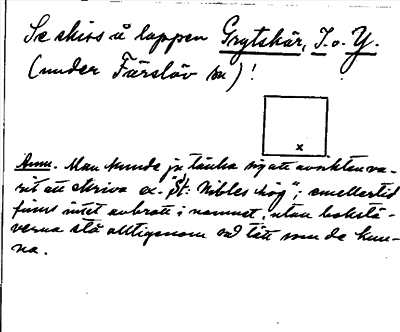 Se skiss å lappen Grytskär, I. o. Y.
(under Färslöv sn)!
x
Anm. Man kunde ju tänka sig att avsikten va-
rit att skriva ex. "St: Nibbles hög"; emellertid
finns intet avbrott i namnet, utan bokstä-
verna stå alltigenom så tätt som de kun-
na.